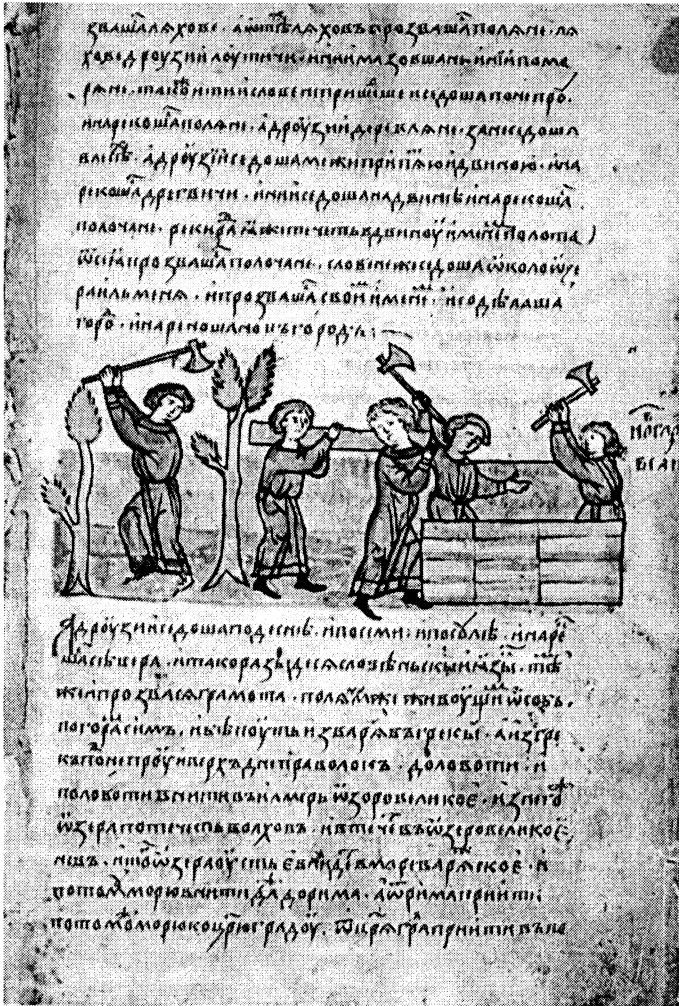 звашаⷭ лѧхове · а ѿ тѣхⷯ лѧховъ прозвашаⷭ полѧне · лѧ
хове дроузии лоутичи · инии мазовшане инии помо
рѧне · такоⷤ и тии словене пришеⷣше и седоша по непроⷹ ·
и нарекошаⷭ полѧне · а дроузии деревлѧне · зане седоша
в лесѣⷯ · а дроузии седоша межи припѣтью и двиною · и на
рекошаⷭ дреговичи · инии седоша на двинѣ и нарекошаⷭ
полочане · рекы раⷣ ꙗже течеть въ двиноу имѧнеⷨ полота
ѿ сеѧ прозвашаⷭ полочане · словене же седоша ѡколо ѡзе
ра ильменѧ · и прозвашаⷭ своиⷨ имѧнеⷨ · и сдѣлаша
гороⷣ · и нарекоша новъгородъ :
а дроузии седоша по деснѣ · и по семи · и по соулѣ · и нареⷦ
шаⷭ севера · и тако разыдесѧ словеньскыи ꙗзыⷦ · тѣⷨ
же и прозвасѧ грамота · полѧноⷨ же живоущиⷨ ѡсобь ·
по гораⷨ симъ · и бѣ поуть из варѧгъ въ грекы · а из гре
къ по непроу и верхъ днепра волокъ · до ловоти · и
по ловоти внити въ илмерь ѡзеро великое · из него
ѡзера потечеть волховъ · и втечеⷮ въ ѡзеро великое
нево · и тоⷢ ѡзера оустье внидеⷮ в море варѧжⷭкое · и
по томоу морю внити даⷤ до рима · а ѿ рима прийти
по томоуⷤ морю ко црⷭюградоу · ѿ црѧграⷣ прийти въ по